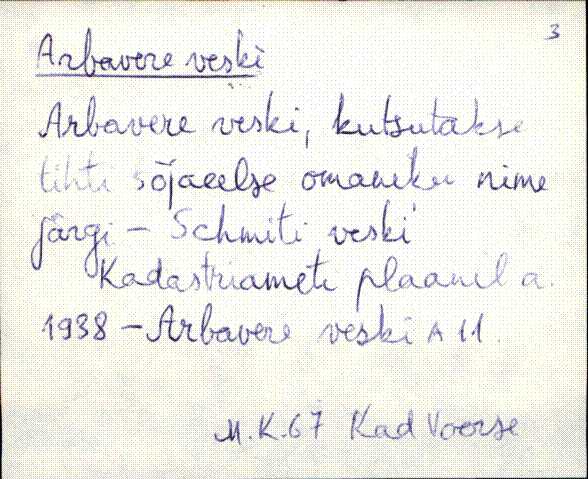 3
Arbavere veski
Arbavere veski, kutsutakse
tihti sõjaeelse omaniku nime
järgi – Schmiti veski
Kadastriameti plaanil a.
1938 – Arbavere veski A 11.
M.K.67 Kad Voorse